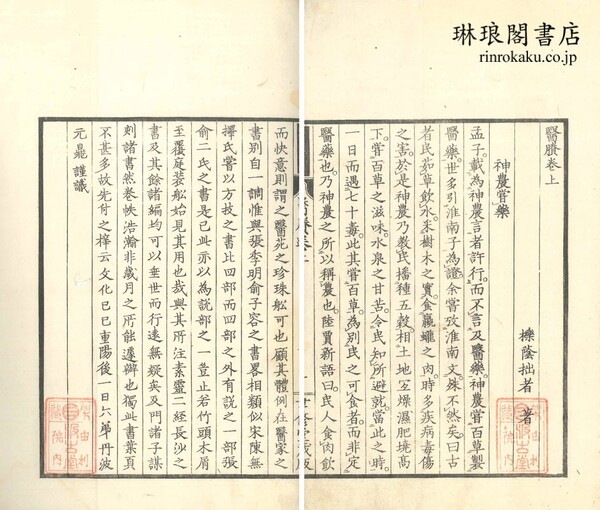 琳琅閣書店
rinrokaku.co.jp
醫賸卷上
櫟蔭拙者 著
神農嘗藥
孟子載為神農言者許行而不言及醫藥神農嘗百草製
醫藥世多引淮南子為證余嘗攷淮南文殊不然矣曰古
者民茹草飲水采樹木之實食蠃蠬之肉時多疾病毒傷
之害於是神農乃教民播種五穀相土地宜燥濕肥墝高
下嘗百草之滋味水泉之甘苦令民知所避就當此之時
一日而遇七十毒此其嘗百草為別民之可食者而非定
醫藥也乃神農之所以稱農也陸賈新語曰民人食肉飲
而快意則謂之醫苑之珍珠船可也顧其體例在醫家之
書別自一調惟與張李明俞子容之書畧相類似宋陳無
擇氏嘗以方技之書比四部而四部之外有說一部張
俞二氏之書是已此亦以為說部之一豈止若竹頭木屑
至覆庭裝船始見其用也哉與其所注素靈二經長沙之
書及其餘諸編均可以垂世而行遠無疑矣及門諸子謀
刻諸書然卷帙浩瀚非歲月之所能遽辦也獨此書葉頁
不甚多故先付之梓云文化己巳重陽後一日六弟丹波
元鼂謹識